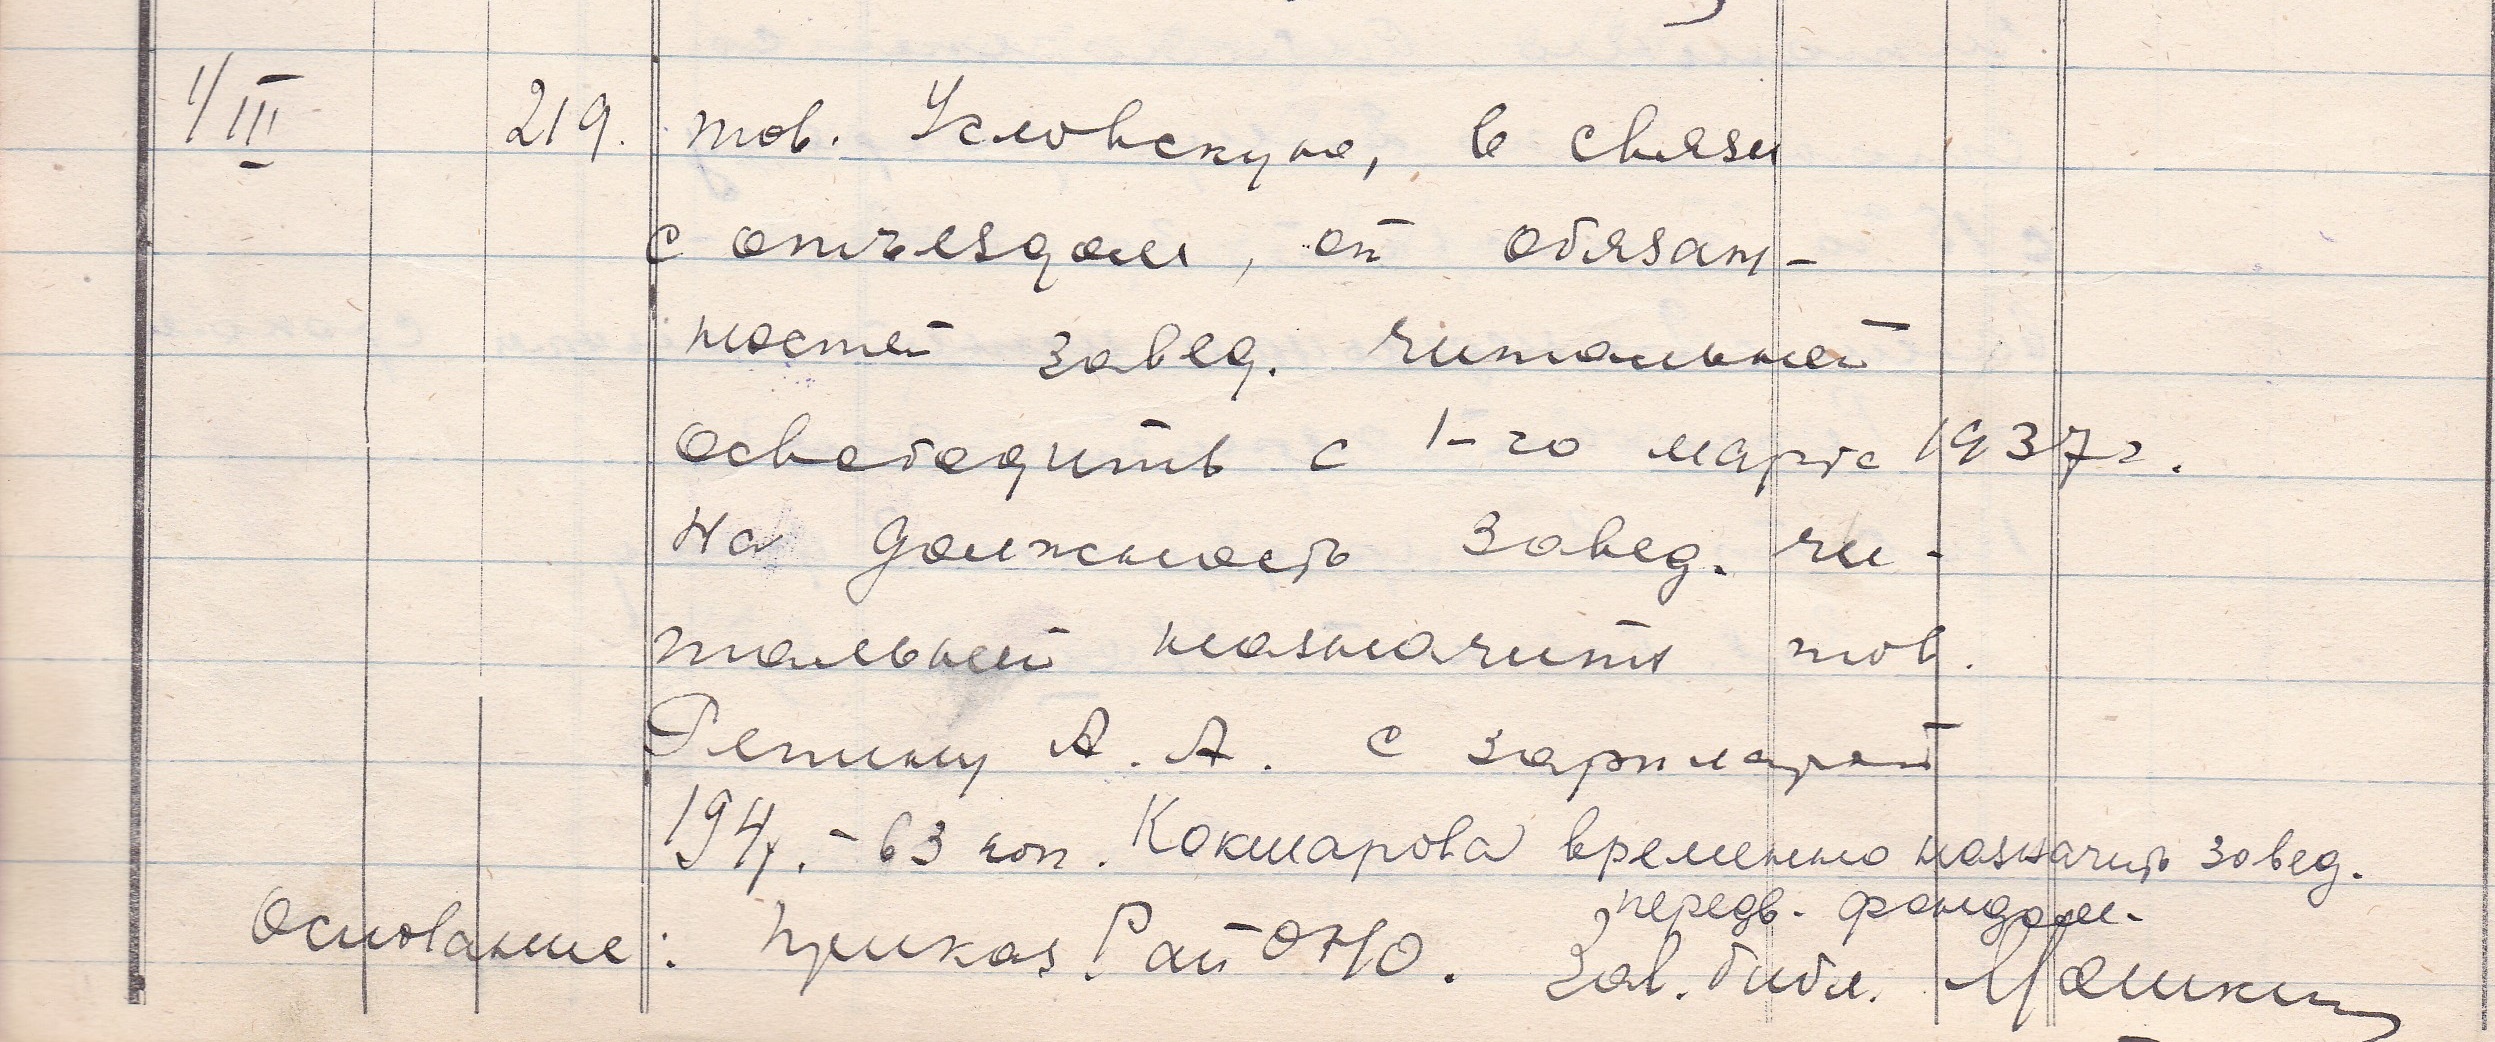 1/III 219. тов. Условскую, в связи
с отъездом, от обязан-
ностей завед. читальней
освободить с 1-го марта 1937 г.
На должность завед. чи-
тальней назначить тов.
Репину А. А. с зарплатой
194 р. - 63 коп. Кокшарова временно назначить завед.
передв. фондом.
Основание: Приказ РайОНО. Зав. библ.